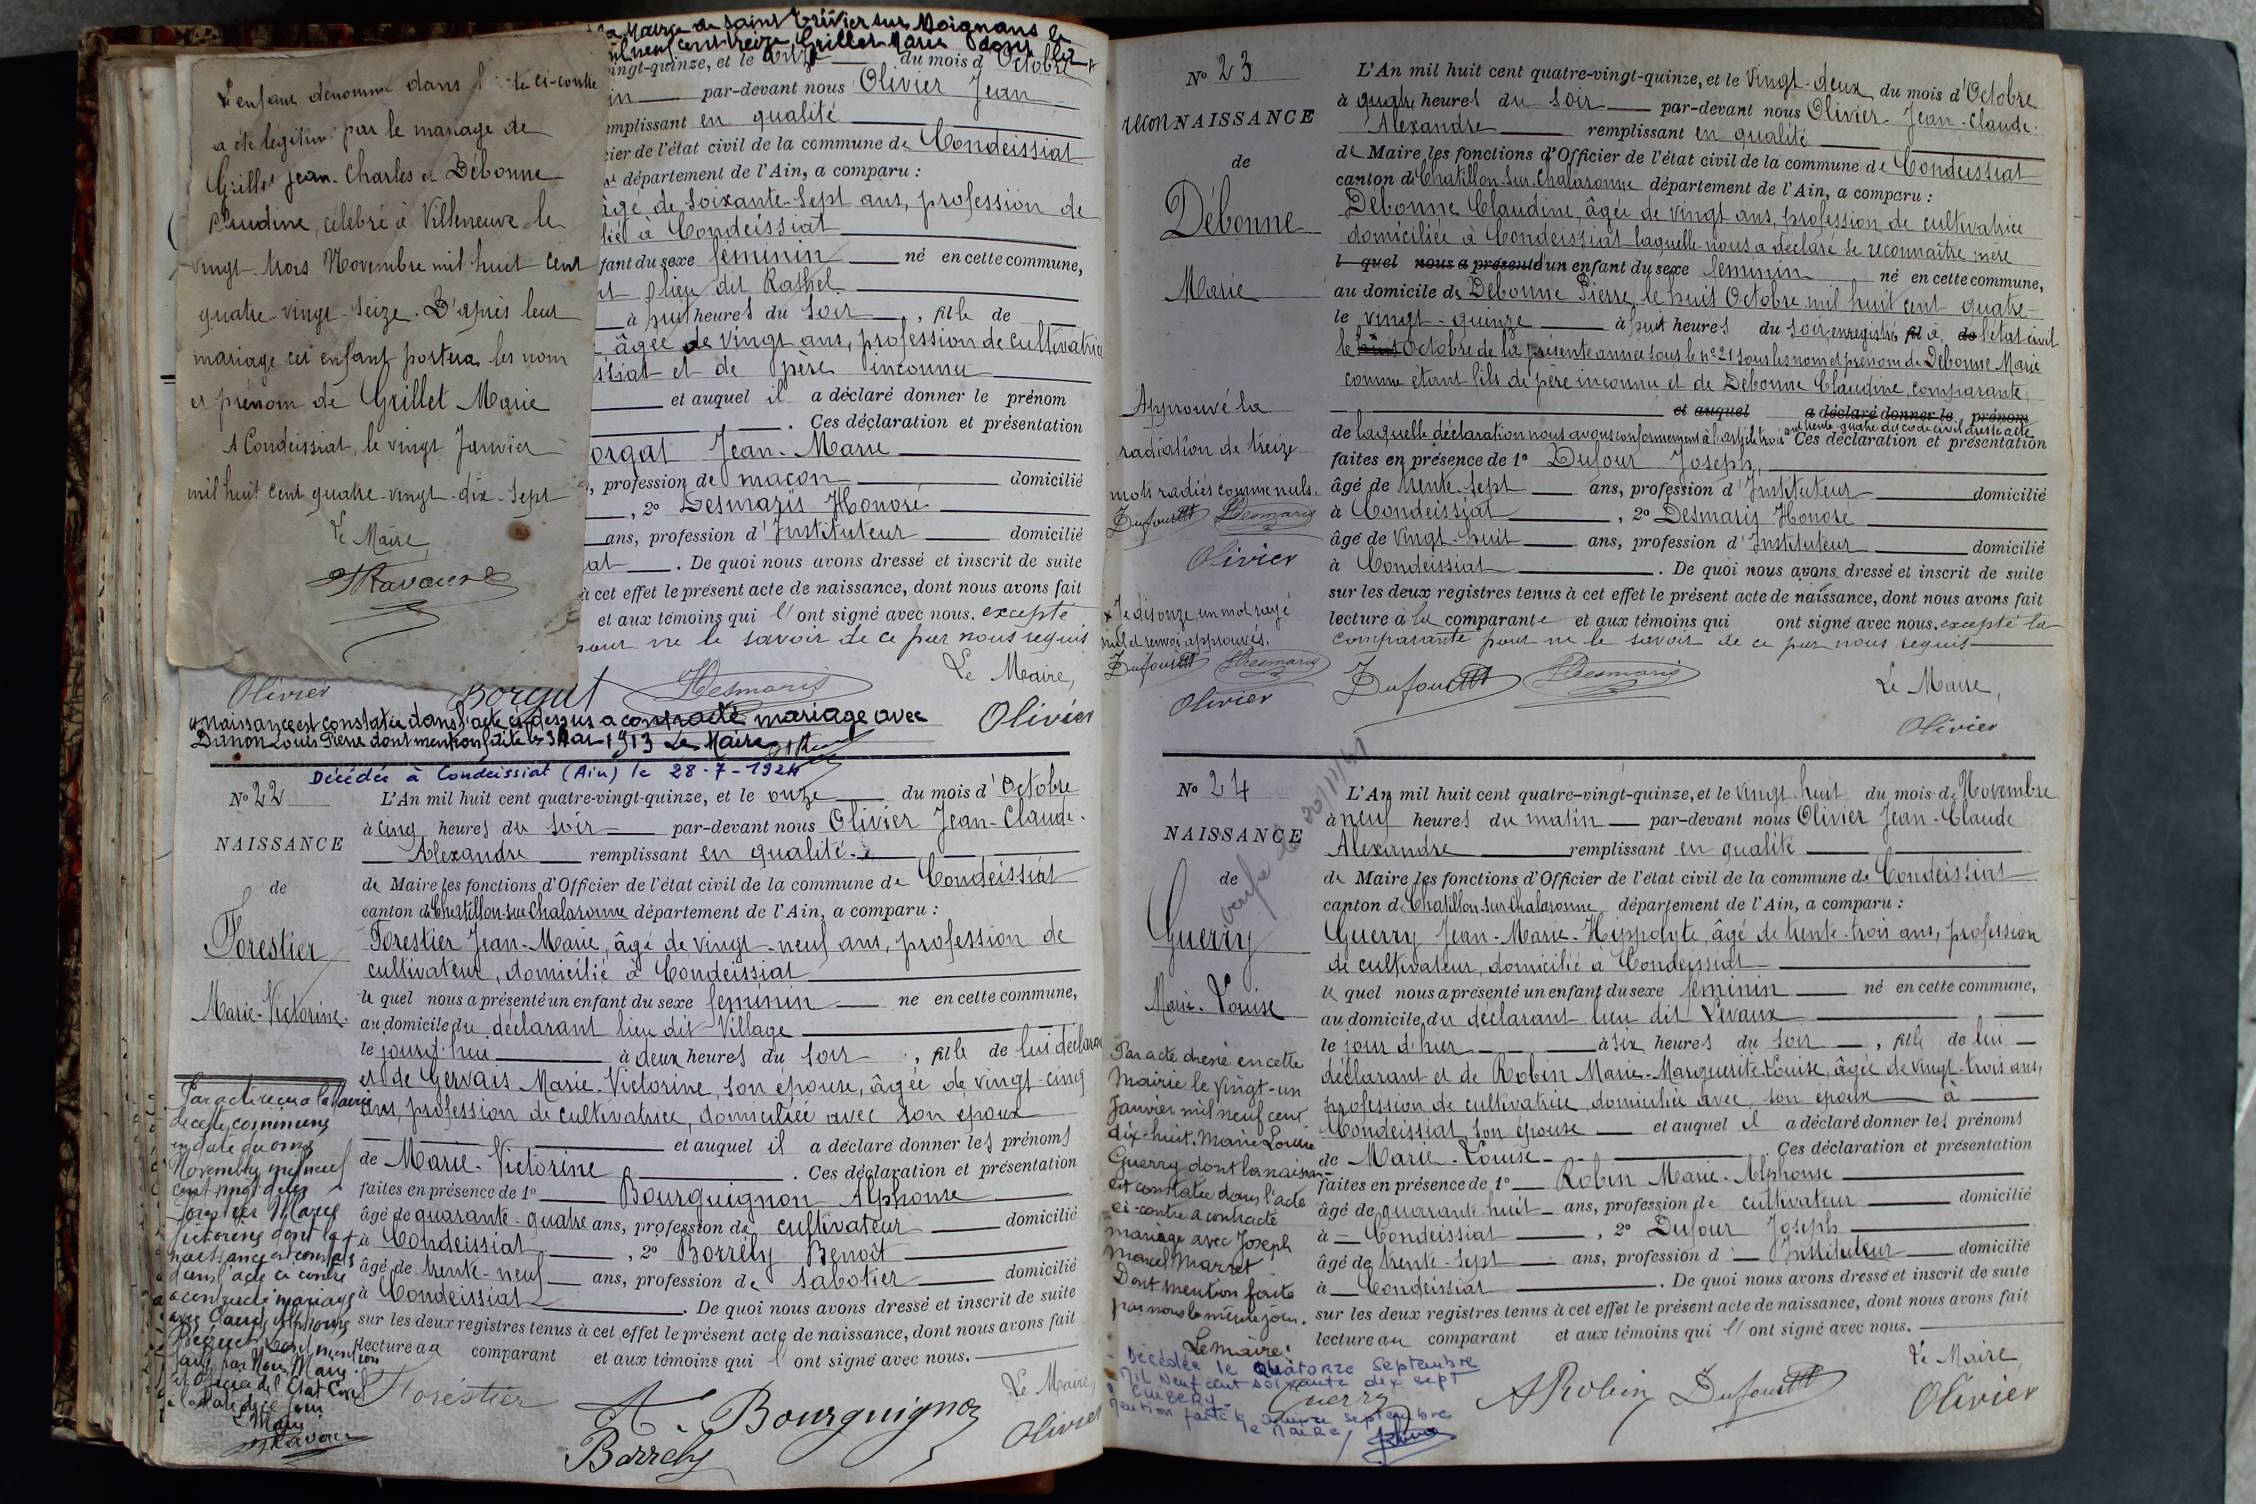 L'enfant dénommé dans l' te ci-contre
a été légitimé par le mariage de
Grillet Jean-Charles et Débonne
Claudine, célébré à Villeneuve le
vingt-trois Novembre mil huit cent
quatre-vingt-seize. D'après leur
mariage cet enfant portera les nom
et prénom de Grillet Marie
A Condeissiat, le vingt Janvier
mil huit cent quatre-vingt-dix-sept
Le Maire,
a Mairie de Saint Trivier sur Moignans le
mil neuf cent treize Grillet Marie dont la
vingt-quinze, et le onze du mois d'Octobre
in par-devant nous Olivier Jean
emplissant en qualité
cier de l'état civil de la commune de Condeissiat
département de l'Ain, a comparu :
âgé de soixante-sept ans, profession de
lié à Condeissiat
fant du sexe féminin né en cette commune,
lieu dit Rathel
à huit heures du soir, fille de
âgée de vingt ans, profession de cultivatrice
ssiat et de père inconnu
et auquel il a déclaré donner le prénom
. Ces déclaration et présentation
orgat Jean-Marie
, profession de maçon domicilié
, 2° Desmaris Honoré
ans, profession d'Instituteur domicilié
at. De quoi nous avons dressé et inscrit de suite
à cet effet le présent acte de naissance, dont nous avons fait
et aux témoins qui l'ont signé avec nous. excepté
pour ne le savoir de ce par nous requis
Le Maire,
Olivier Borgat Desmaris
Olivier
naissance est constatée dans l'acte ci-dessus a contracté mariage avec
Louis Pierre dont mention faite le 3 Mar 1913 Le Maire
Décédée à Condeissiat (Ain) le 28-7-1924
N° 22
NAISSANCE
de
Forestier
Marie-Victorine.
L'An mil huit cent quatre-vingt-quinze, et le onze du mois d'Octobre
à cinq heures du soir par-devant nous Olivier Jean-Claude-
Alexandre remplissant en qualité
de Maire les fonctions d'Officier de l'état civil de la commune de Condeissiat
canton de Chatillon-sur-Chalaronne département de l'Ain, a comparu :
Forestier Jean-Marie, âgé de vingt-neuf ans, profession de
cultivateur, domicilié à Condeissiat
le quel nous a présenté un enfant du sexe féminin né en cette commune,
au domicile du déclarant lieu dit Village
le jourd'hui à deux heures du soir, fille de lui déclarant
et de Gervais Marie-Victorine, son épouse, âgée de vingt-cinq
ans, profession de cultivatrice, domiciliée avec son époux
et auquel il a déclaré donner les prénoms
de Marie-Victorine. Ces déclaration et présentation
faites en présence de 1° Bourguignon Alphonse
âgé de quarante-quatre ans, profession de cultivateur domicilié
à Condeissiat, 2° Borrély Benoît
âgé de trente-neuf ans, profession de sabotier domicilié
à Condeissiat. De quoi nous avons dressé et inscrit de suite
sur les deux registres tenus à cet effet le présent acte de naissance, dont nous avons fait
lecture au comparant et aux témoins qui l'ont signé avec nous.
Par acte reçu à la Mairie
de cette commune
en date du onze
Novembre mil neuf
cent vingt deux
Forestier Marie
Victorine dont la
naissance est constatée
dans l'acte ci contre
a contracté mariage
avec
dont mention
faite par Nous Maire
et Officier de l'Etat Civil
à la date de ce jour
Le Maire
Forestier
A. Bourguignon
Borrély
Le Maire,
Olivier
N° 23
reconNAISSANCE
de
Débonne
Marie
L'An mil huit cent quatre-vingt-quinze, et le vingt-deux du mois d'Octobre
à quatre heures du soir par-devant nous Olivier-Jean-Claude-
Alexandre remplissant en qualité
de Maire les fonctions d'Officier de l'état civil de la commune de Condeissiat
canton de Chatillon-sur-Chalaronne département de l'Ain, a comparu :
Débonne Claudine, âgée de vingt ans, profession de cultivatrice
domiciliée à Condeissiat laquelle nous a déclaré se reconnaître mère
l quel nous a présenté d'un enfant du sexe féminin né en cette commune,
au domicile de Débonne Pierre, le huit Octobre mil huit cent quatre-
le vingt-quinze à huit heures du soir enregistré fil à de l'état civil
le huit Octobre de la présente année sous le n° 21 sous les nom et prénom de Débonne Marie
comme étant fils de père inconnu et de Débonne Claudine, comparante
et auquel a déclaré donner le prénom
de laquelle déclaration nous avons conformément à l'article trois cent trente-quatre du code civil dressé acte Ces déclaration et présentation
faites en présence de 1° Dufour Joseph,
âgé de trente-sept ans, profession d'Instituteur domicilié
à Condeissiat, 2° Desmaris Honoré
âgé de vingt-huit ans, profession d'Instituteur domicilié
à Condeissiat. De quoi nous avons dressé et inscrit de suite
sur les deux registres tenus à cet effet le présent acte de naissance, dont nous avons fait
lecture à la comparante et aux témoins qui ont signé avec nous, excepté la
comparante pour ne le savoir de ce par nous requis
Approuvé la
radiation de treize
mots radiés comme nuls.
Dufour Desmaris
Olivier
x Je dis onze, un mot rayé
nul, et renvoi approuvés.
Dufour Desmaris
Olivier
Dufour Desmaris
Le Maire,
Olivier
N° 24
NAISSANCE
de
Guerry
Marie-Louise
L'An mil huit cent quatre-vingt-quinze, et le vingt-huit du mois de Novembre
à neuf heures du matin par-devant nous Olivier Jean-Claude
Alexandre remplissant en qualité
de Maire les fonctions d'Officier de l'état civil de la commune de Condeissiat
canton de Chatillon-sur-Chalaronne département de l'Ain, a comparu :
Guerry Jean-Marie-Hippolyte, âgé de trente-trois ans, profession
de cultivateur, domicilié à Condeissiat
le quel nous a présenté un enfant du sexe féminin né en cette commune,
au domicile du déclarant lieu dit Levaux
le jour d'hier à six heures du soir, fille de lui
déclarant et de Robin Marie-Marguerite-Louise, âgée de vingt-trois ans,
profession de cultivatrice domiciliée avec son époux à
Condeissiat son épouse et auquel il a déclaré donner les prénoms
de Marie-Louise. Ces déclaration et présentation
faites en présence de 1° Robin Marie-Alphonse
âgé de quarante-huit ans, profession de cultivateur domicilié
à Condeissiat, 2° Dufour Joseph
âgé de trente-sept ans, profession d'Instituteur domicilié
à Condeissiat. De quoi nous avons dressé et inscrit de suite
sur les deux registres tenus à cet effet le présent acte de naissance, dont nous avons fait
lecture au comparant et aux témoins qui l'ont signé avec nous.
Par acte dressé en cette
Mairie le vingt-un
Janvier mil neuf cent
dix-huit, Marie Louise
Guerry dont la naissan-
est constatée dans l'acte
ci-contre a contracté
mariage avec Joseph
Marcel Marret
Dont mention faite
par nous le même jour.
Le maire:
Décédée le quatorze septembre
mil neuf cent soixante dix sept
mention faite le septembre
le Maire,
Guerry A Robin Dufour
Le Maire,
Olivier